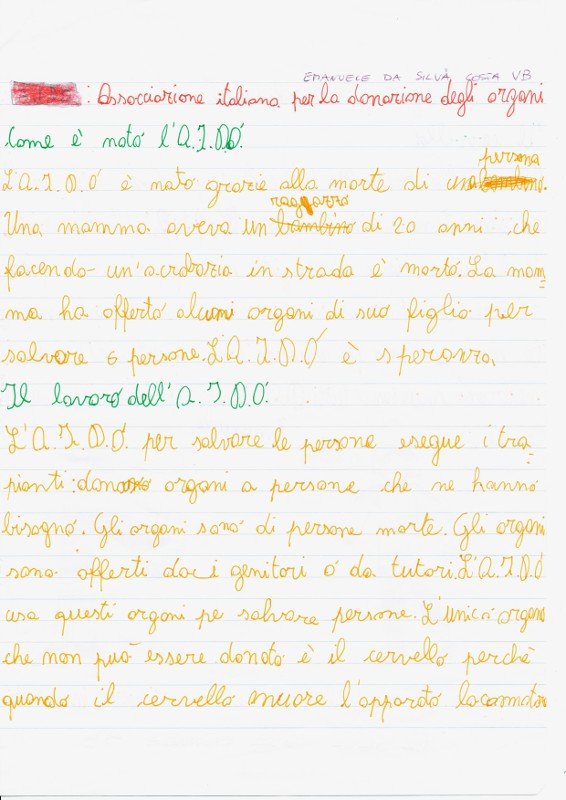 EMANUELE DA SILVA COSTA VB
: Associazione italiana per la donazione degli organi
Come è nató l'A.I.D.Ó.
persona
L'A.I.D.Ó è nato grazie alla morte di una
ragazzo
Una mamma aveva un bambino di 20 anni, che
facendo un'acrobazia in strada è mortó. La mam=
ma ha offertó alcuni organi di suo figlio per
salvare 6 persone. L'A.I.D.Ó è speranza.
Il lavoró dell'A.I.D.Ó.
L'A.I.D.Ó. per salvare le persone esegue i tra=
pianti: organi a persone che ne hannó
bisognó. Gli organi sonó di persone morte. Gli organi
sono offerti dai genitori ó da tutori. L'A.I.D.Ó
usa questi organi pe salvare persone. L'unicó organo
che non può essere donato è il cervello perchè
quando il cervello muore l'apparató